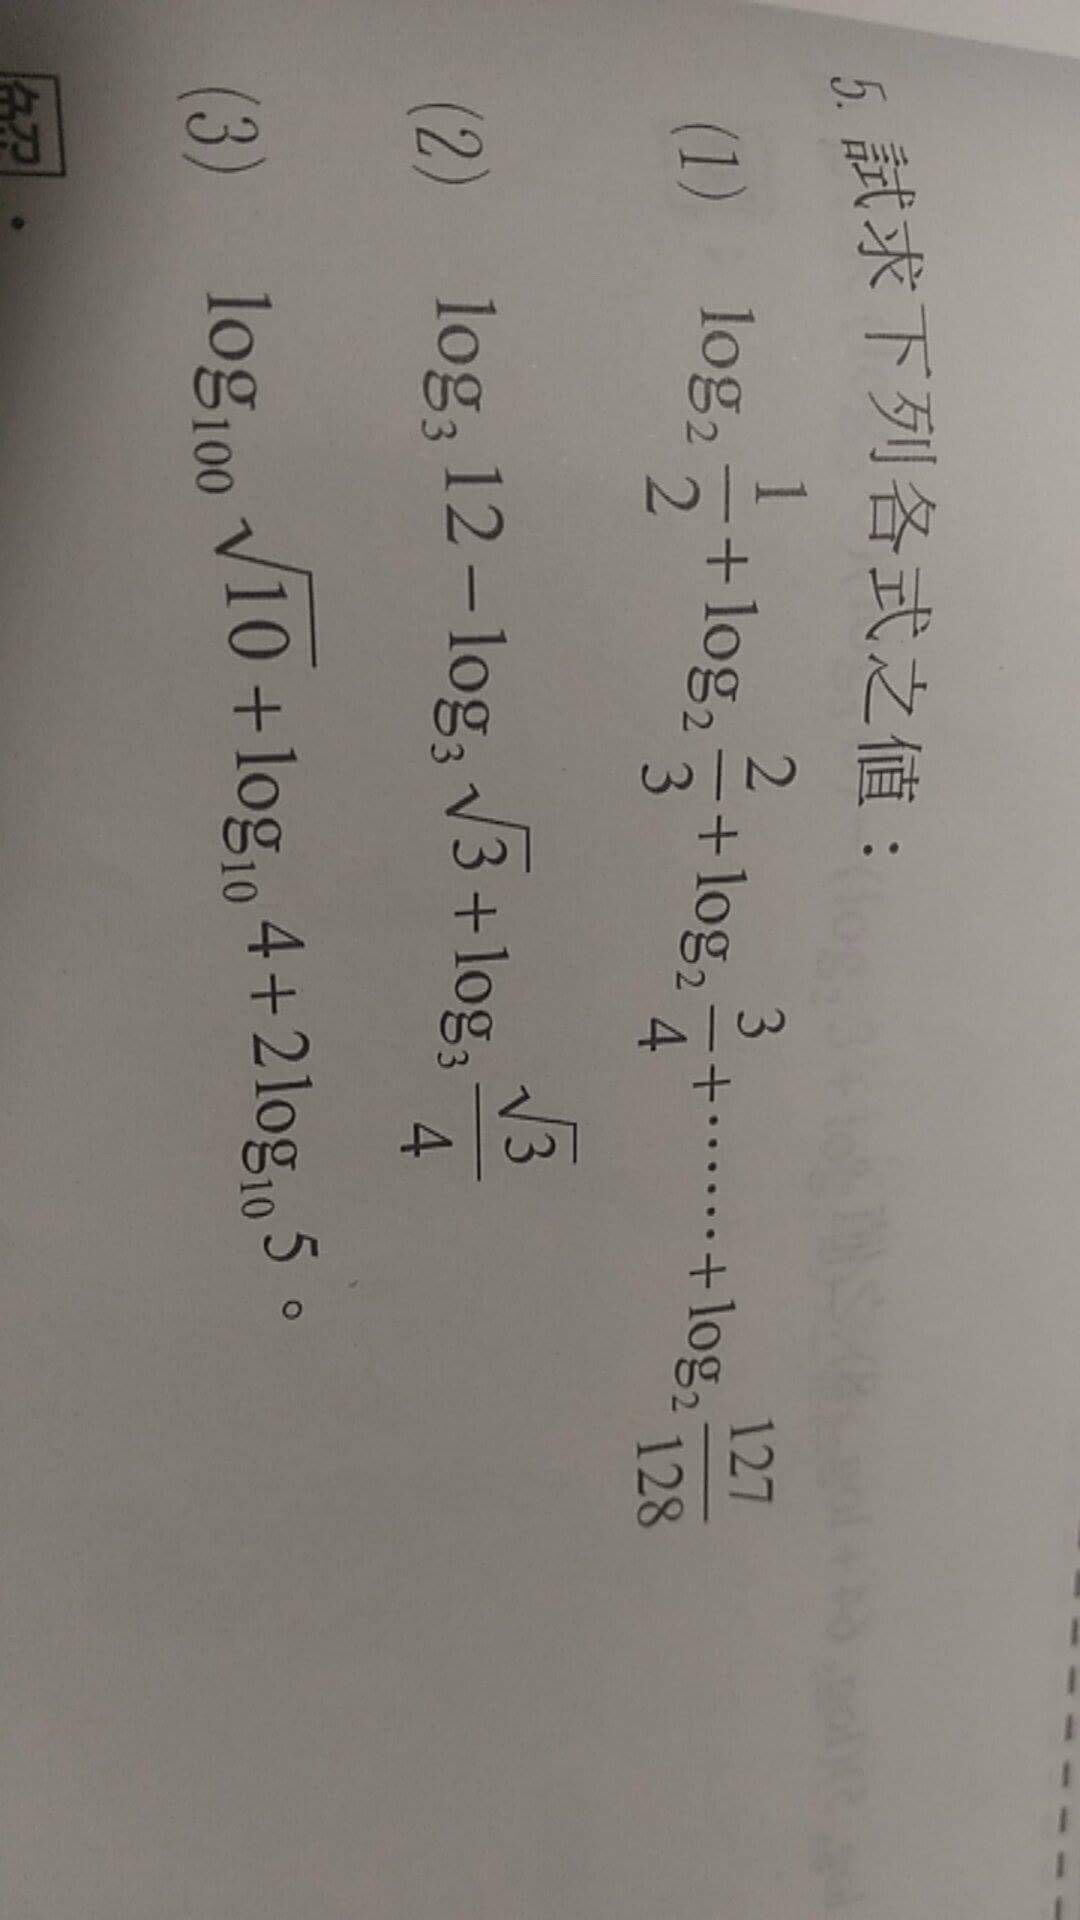 5. 試求下列各式之值：
(1) log₂ 1/2 + log₂ 2/3 + log₂ 3/4 + …… + log₂ 127/128
(2) log₃ 12 − log₃ √3 + log₃ √3/4
(3) log₁₀₀ √10 + log₁₀ 4 + 2log₁₀ 5 。